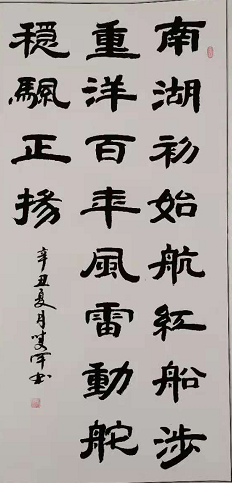 南湖初始航紅船涉
重洋百年風雷動舵
穩颿正揚
辛丑夏月書